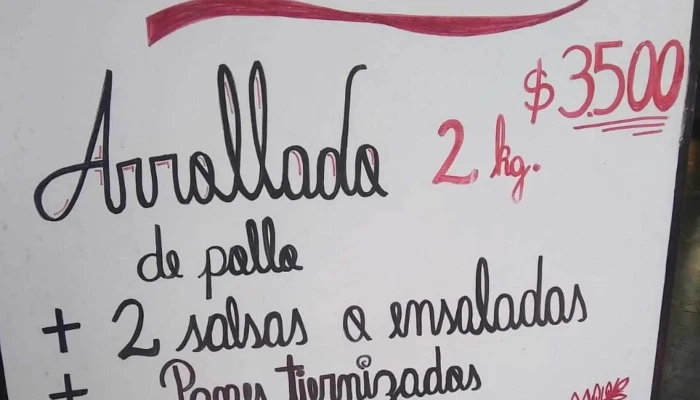 $3.500
Arrollado 2 kg.
de pollo
+ 2 salsas o ensaladas
+ Panes tiernizados